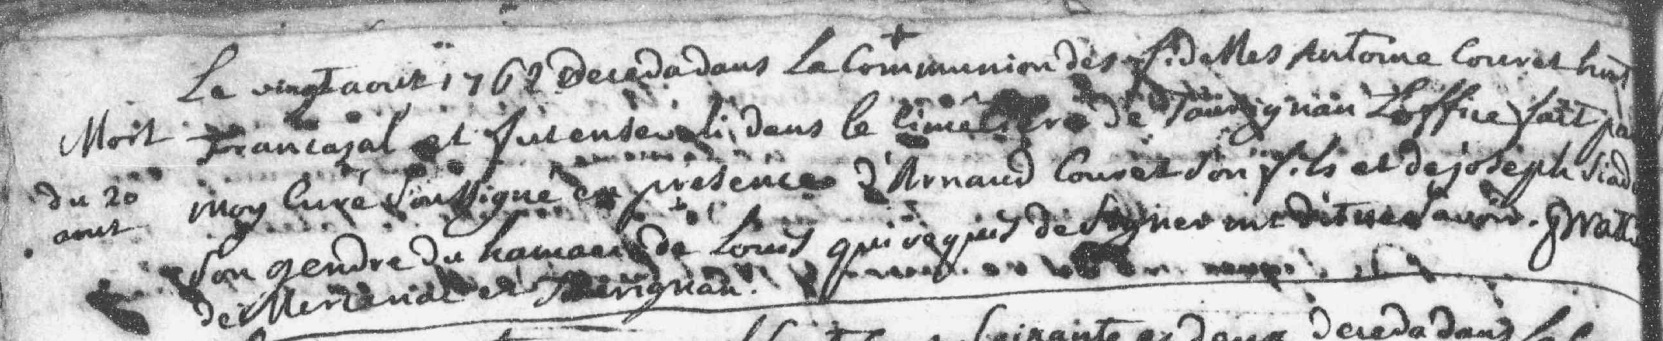 Le vingt aout 1762 deceda dans la Communion des fidelles Antoine Couret
Mort francazal et fut enseveli dans le cimetiere de Taurignan L'office fait par
du 20 moy Curé soussigné en presence d'Arnaud Couret son fils et de joseph
aout son gendre du hamau de Louis qui requis de signer ont dit ne savoir.
de Mercenac et Taurignan.
deceda dans